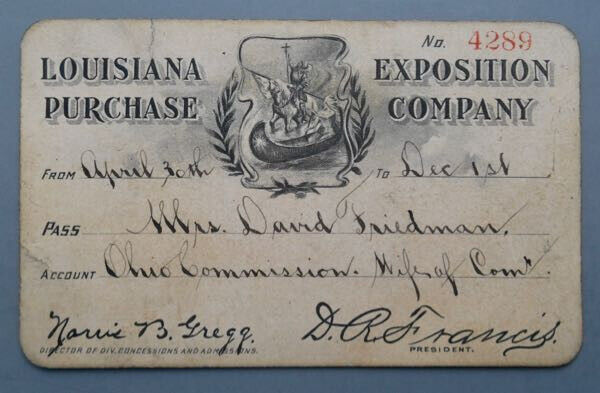 No. 4289
LOUISIANA EXPOSITION
PURCHASE COMPANY
FROM April 30th TO Dec 1st
PASS Mrs. David Friedman,
ACCOUNT Ohio Commission. Wife of Comr.
Norris B. Gregg. D. R. Francis.
DIRECTOR OF DIV. CONCESSIONS AND ADMISSIONS. PRESIDENT.